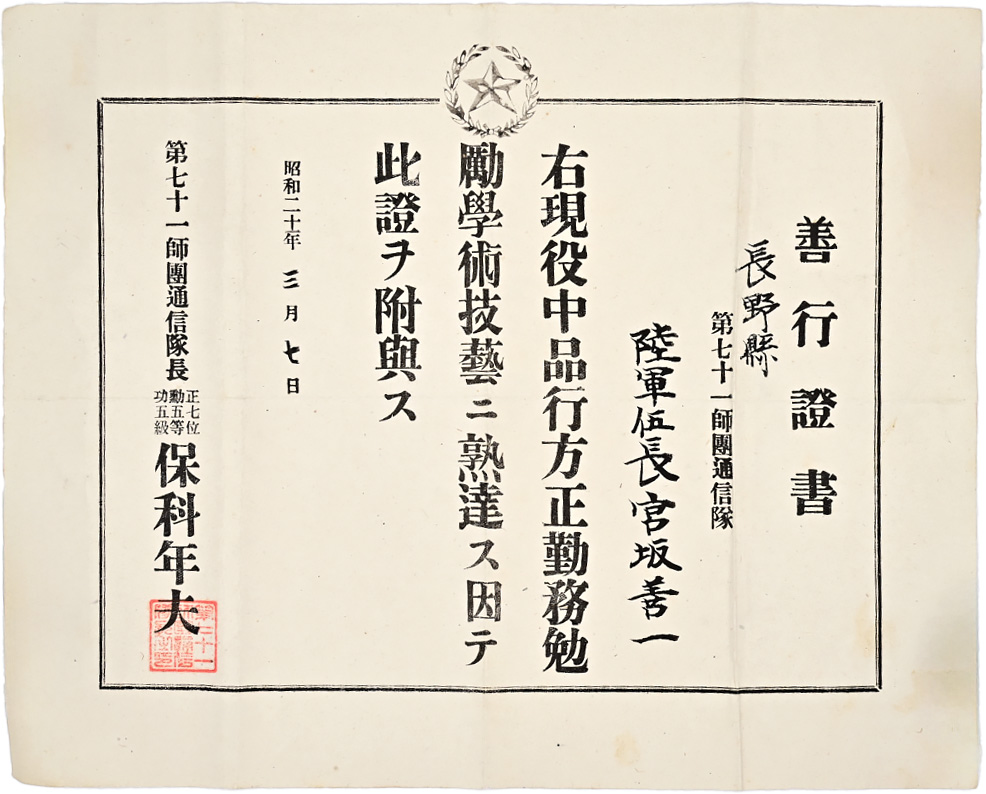 善行證書
長野縣
第七十一師團通信隊
陸軍伍長宮坂善一
右現役中品行方正勤務勉
勵學術技藝ニ熟達ス因テ
此證ヲ附與ス
昭和二十年三月七日
第七十一師團通信隊長
正七位
勳五等
功五級
保科年夫